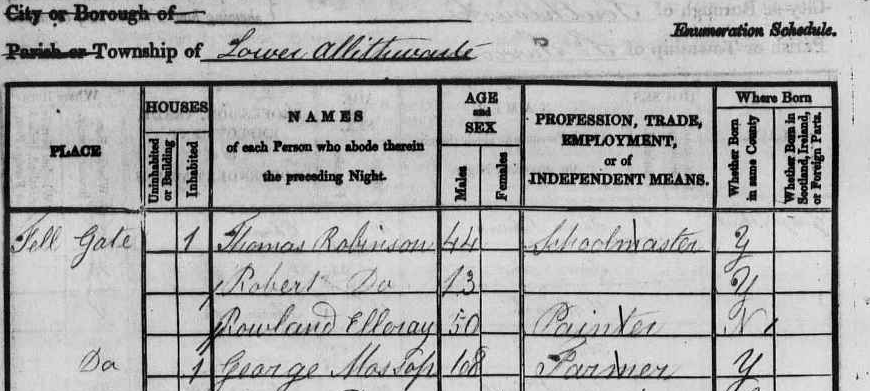 City or Borough of
Enumeration Schedule.
Parish or Township of Lower Allithwaite
PLACE
HOUSES
Uninhabited or Building
Inhabited
NAMES
of each Person who abode therein
the preceding Night.
AGE
and
SEX
Males
Females
PROFESSION, TRADE,
EMPLOYMENT,
or of
INDEPENDENT MEANS.
Where Born
Whether Born in same County
Whether Born in Scotland, Ireland, or Foreign Parts.
Fell Gate 1 Thomas Robinson 44 Schoolmaster Y
Robert Do 13 Y
Rowland Elleray 50 Painter N
Do 1 George Mossop Farmer Y